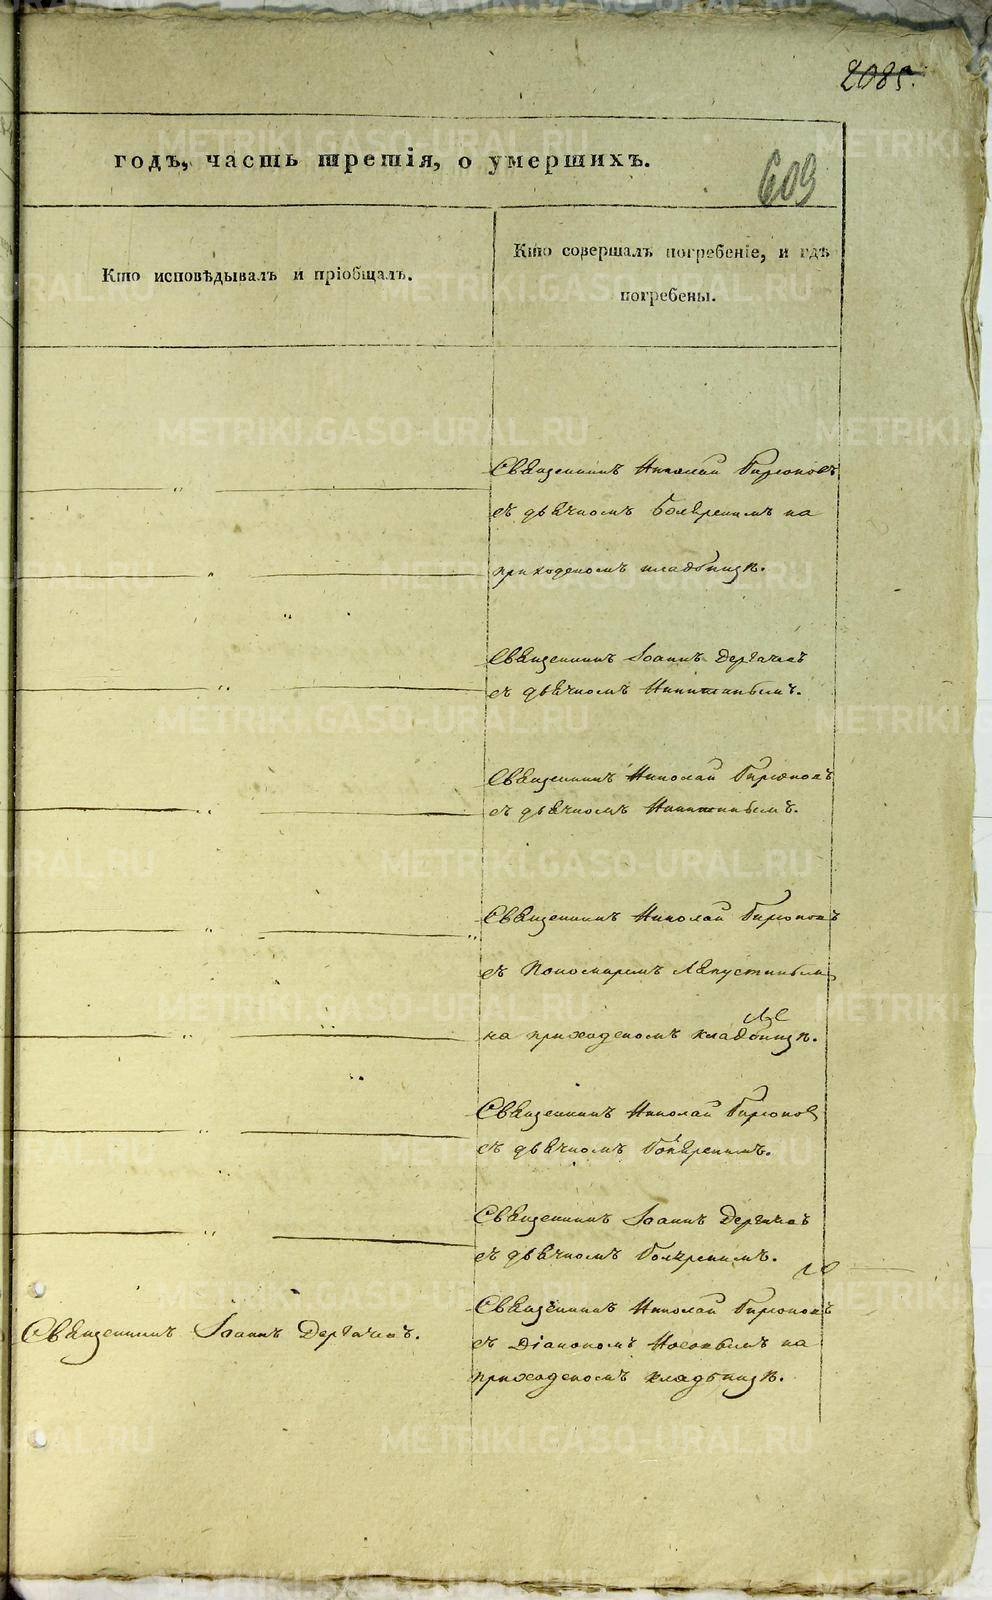 2085.
609
годъ, часть третія, о умершихъ.
Кто исповѣдывалъ и пріобщалъ.
Кто совершалъ погребеніе, и гдѣ
погребены.
Священникъ Николай Бирюковъ
съ дьячкомъ Боярскимъ на
приходскомъ кладбищѣ.
Священникъ Іоаннъ Дергачевъ
съ дьячкомъ
Священникъ Николай Бирюковъ
съ дьячкомъ
Священникъ Николай Бирюковъ
съ Пономаремъ
на приходскомъ кладбищѣ.
Священникъ Николай Бирюков
съ дьячкомъ Боярскимъ.
Священникъ Іоаннъ Дергачевъ
съ дьячкомъ Боярскимъ.
Священникъ Іоаннъ Дергачевъ.
Священникъ Николай Бирюковъ
съ Діакономъ Носовымъ на
приходскомъ кладбищѣ.
METRIKI.GASO-URAL.RU